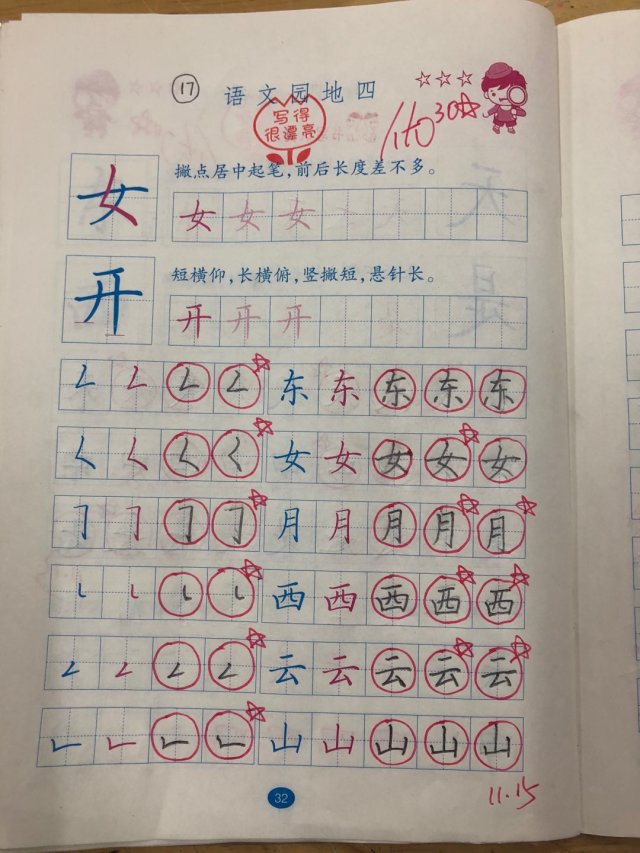 17 语文园地四
写得
很漂亮
30
撇点居中起笔，前后长度差不多。
女 女 女 女
短横仰，长横俯，竖撇短，悬针长。
开 开 开 开
东 东 东 东 东
女 女 女 女 女
月 月 月 月 月
西 西 西 西 西
云 云 云 云 云
山 山 山 山 山
32
11.15